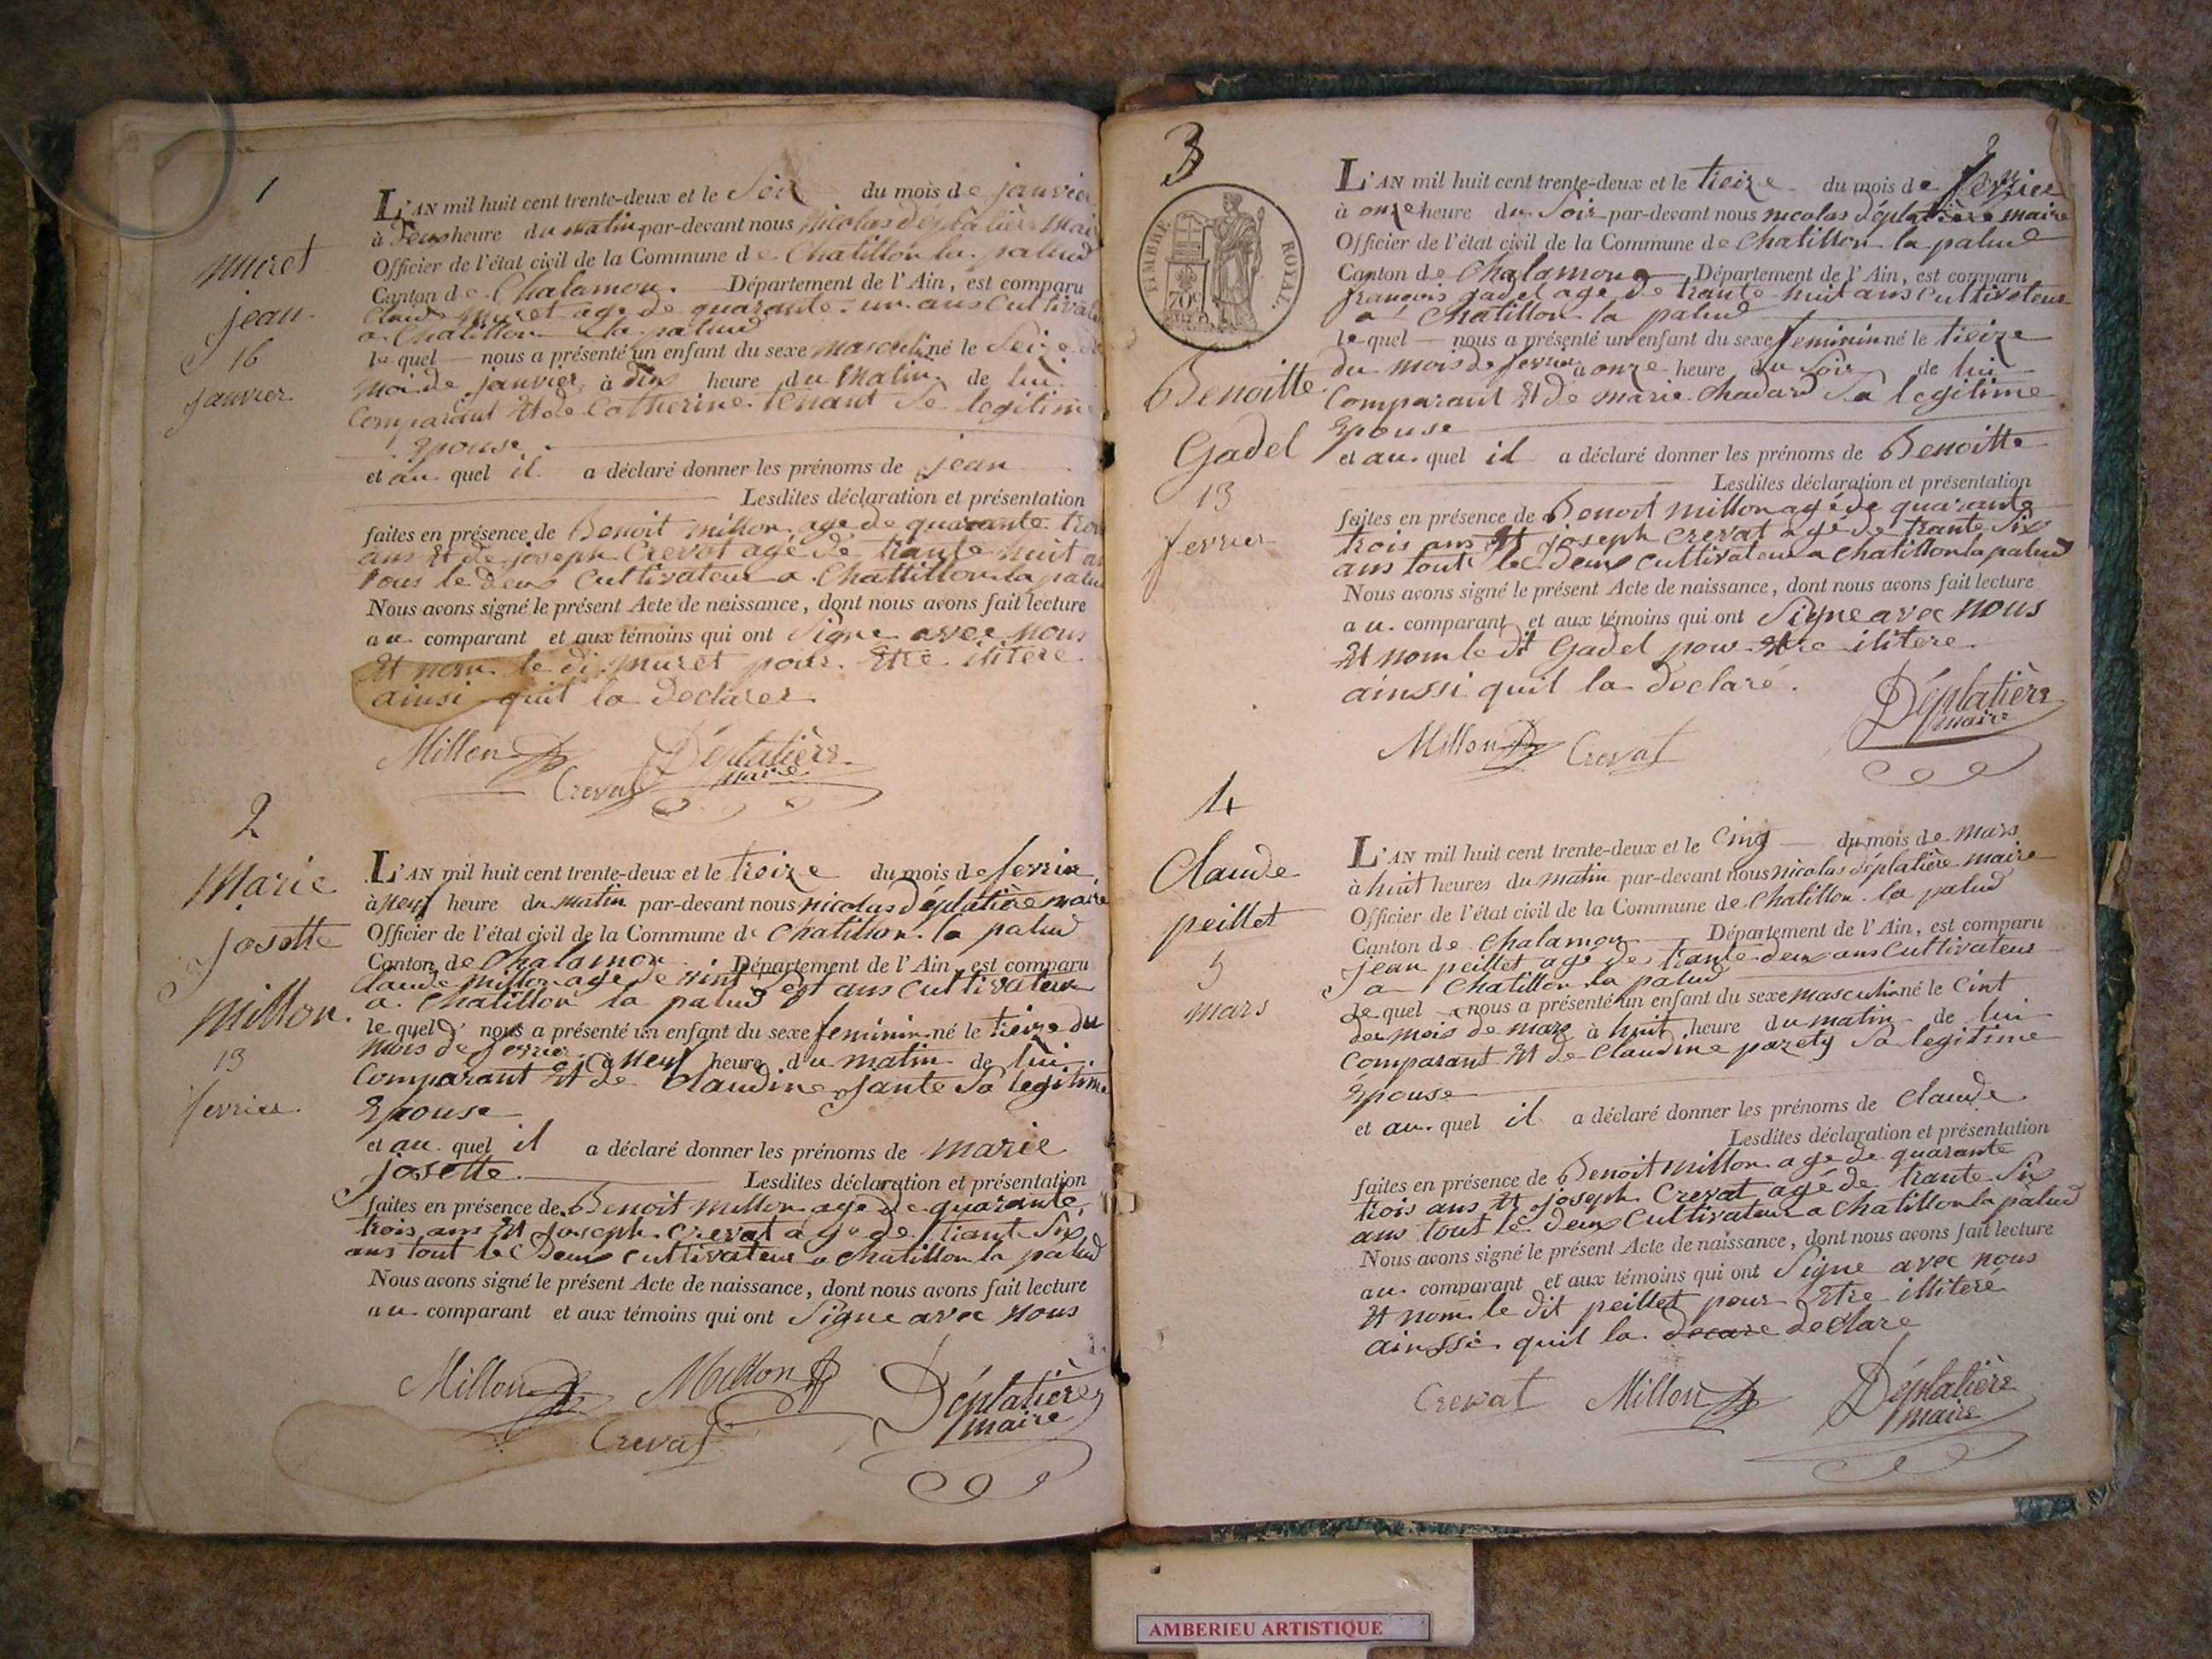 1
muret
jean
16
janvier
L'AN mil huit cent trente-deux et le Seiz du mois de janvier
à deux heure du matin par-devant nous Nicolas déplatière Mai
Officier de l'état civil de la Commune de Chatillon la palud
Canton de Chalamon. Département de l'Ain, est comparu
Claude muret age de quarante un ans Cultivat
a Chatillon la palud
le quel nous a présenté un enfant du sexe masculin né le Seize
moi de janvier à dix heure du Matin de lui
Comparant Et de Catherine Tenant Se legitime
Epouse
et au quel il a déclaré donner les prénoms de jean
Lesdites déclaration et présentation
faites en présence de Benoit millon age de quarante troi
ans Et de joseph Crevat agé de trante huit an
tous le deux Cultivateur a Chattillon la palud
Nous avons signé le présent Acte de naissance, dont nous avons fait lecture
au comparant et aux témoins qui ont Signe avec nous
Et nom le di muret pour Etre ilitere
ainsi quil la declarer
Millon Déplatière
Crevat maire
2
Marie
josette
millon
13
fevrier
L'AN mil huit cent trente-deux et le treize du mois de fevrier
à neuf heure du matin par-devant nous nicolas déplatière maire
Officier de l'état civil de la Commune de Chatillon la palud
Canton de Chalamon Département de l'Ain, est comparu
Claude millon age de vint set ans Cultivateur
a Chatillon la palud
le quel nous a présenté un enfant du sexe feminin né le treize du
mois de fevrier à neuf heure du matin de lui
Comparant Et de Claudine jante Sa legitime
Epouse
et au quel il a déclaré donner les prénoms de marie
josette. Lesdites déclaration et présentation
faites en présence de Benoit millon age de quarante
trois ans Et joseph Crevat age de trante Six
ans tout le deux cultivateur a chatillon la palud
Nous avons signé le présent Acte de naissance, dont nous avons fait lecture
au comparant et aux témoins qui ont Signe avec nous
Millon Millon Déplatière
Crevat maire
3
2
TIMBRE ROYAL.
70c
Benoitte
Gadel
13
fevrier
L'AN mil huit cent trente-deux et le treize du mois de fevrier
à onze heure du Soir par-devant nous nicolas déplatière maire
Officier de l'état civil de la Commune de Chatillon la palud
Canton de Chalamon Département de l'Ain, est comparu
françois gadel age de trante huit ans Cultivateur
a Chatillon la palud
le quel nous a présenté un enfant du sexe feminin né le treize
du mois de fevrier à onze heure du Soir de lui
Comparant Et de marie Chadard Sa legitime
Epouse
et au quel il a déclaré donner les prénoms de Benoitte
Lesdites déclaration et présentation
faites en présence de Benoit millon agé de quarante
trois ans Et joseph Crevat agé de trante Six
ans tout le deux cultivateur a chatillon la palud
Nous avons signé le présent Acte de naissance, dont nous avons fait lecture
au comparant et aux témoins qui ont Signe avec nous
Et nom le dit Gadel pour Etre ilitere
ainssi quil la declaré.
Déplatière
maire
Millon Crevat
4
Claude
peillet
5
mars
L'AN mil huit cent trente-deux et le Cinq du mois de mars
à huit heures du matin par-devant nous nicolas déplatière maire
Officier de l'état civil de la Commune de Chatillon la palud
Canton de Chalamon Département de l'Ain, est comparu
jean peillet age de trante deux ans Cultivateur
a Chatillon la palud
le quel nous a présenté un enfant du sexe masculin né le Cint
du mois de mars à huit heure du matin de lui
Comparant Et de Claudine pazety Sa legitime
Epouse
et au quel il a déclaré donner les prénoms de Claude
Lesdites déclaration et présentation
faites en présence de Benoit millon age de quarante
trois ans Et joseph Crevat agé de trante Six
ans tout le deux Cultivateur a Chatillon la palud
Nous avons signé le présent Acte de naissance, dont nous avons fait lecture
au comparant et aux témoins qui ont Signe avec nous
Et nom le dit peillet pour Etre illiteré
ainssi quil la decare declare
Crevat Millon Déplatière
maire
AMBERIEU ARTISTIQUE